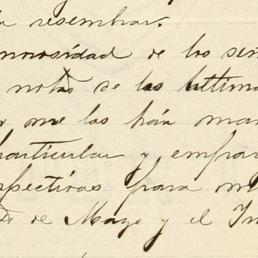 resembrar.
morosidad de los señ
notas de las ultima
me las han man
particular y empra
spectivas para m
de Mayo y el In